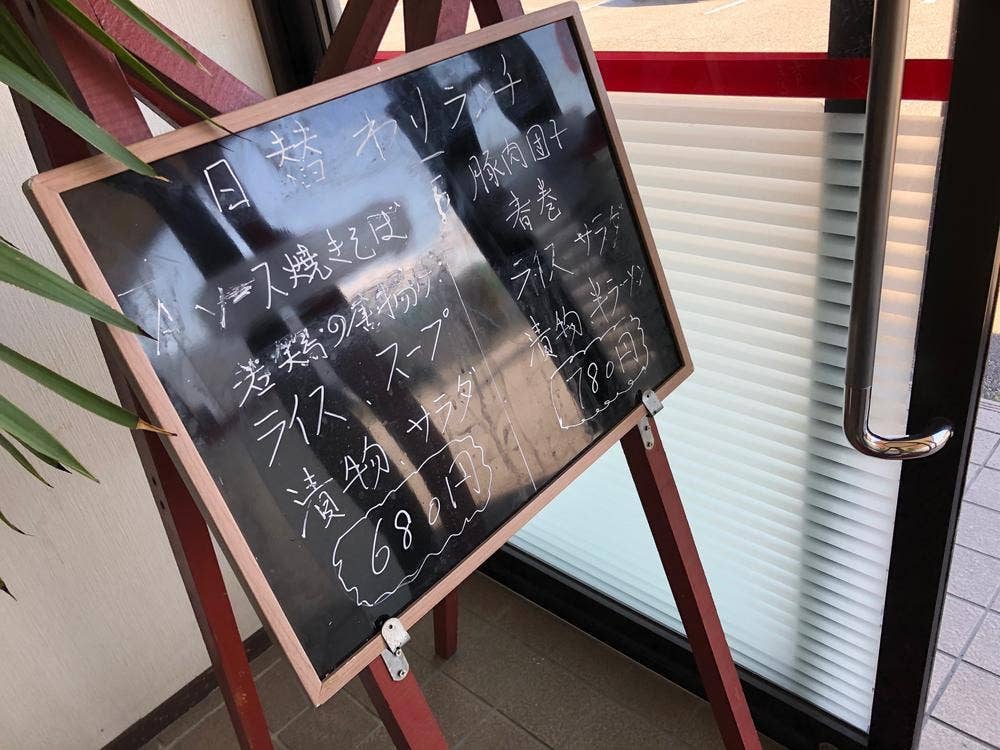 日替わりランチ
A ソース焼きそば
ライス、スープ
漬物、サラダ
680円
B 豚肉団子
春巻
ライス サラダ
漬物 半ラーメン
780円